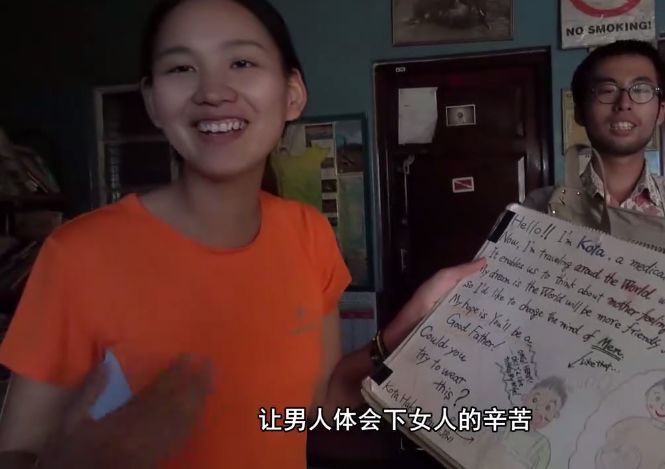 NO SMOKING!
Hello!! I'm Kota. a medical
Now, I'm traveling around the World
It enables us to think about mother feeling
My dream is the World will be more friendly
so I'd like to change the mind of Men
My hope is You'll be a
Good Father!
Like that...
Could you
try to wear
this?
Kota
让男人体会下女人的辛苦